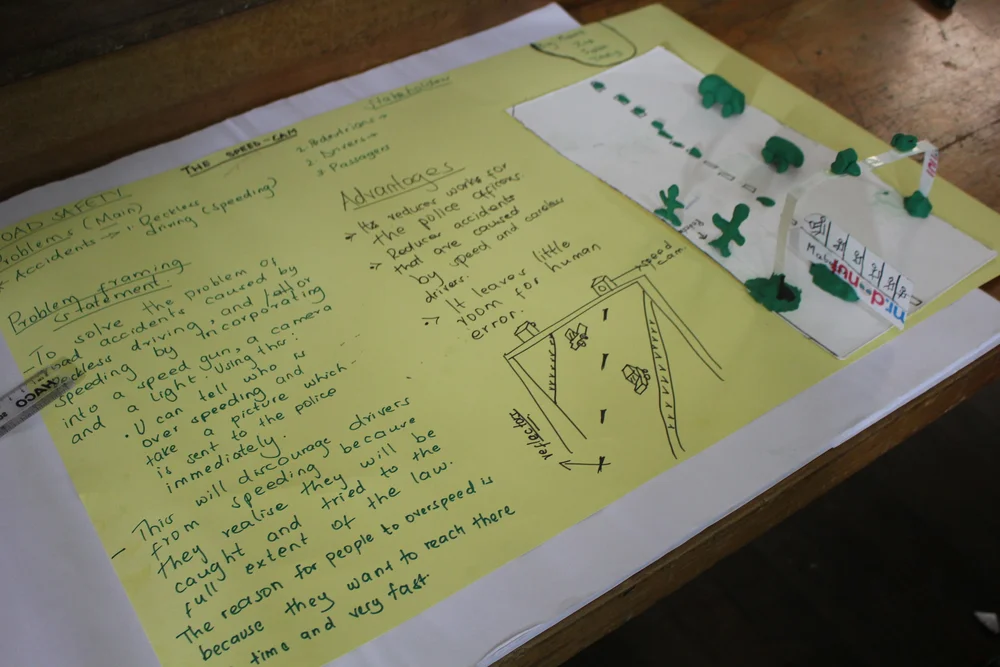 THE SPEED-CAM
ROAD SAFETY
Problems (Main)
Accidents → 1. Reckless
driving (speeding)
Problem framing
statement:
To solve the problem of
road accidents caused by
reckless driving, and/or
speeding by incorporating
into a speed gun, a camera
and a light. Using this:
• U can tell who is
over speeding and
take a picture which
is sent to the police
immediately.
- This will discourage drivers
from speeding because
they realise they will be
caught and tried to the
full extent of the law.
The reason for people to overspeed is
because they want to reach there
time and very fast
Stakeholders
1. Pedestrians
2. Drivers
3. Passagers
Advantages
Its reducer works for
the police officers.
Reducer accidents
that are caused
by speed and careless
drivers.
It leaves little
room for human
error.
speed
cam
reflector
HACO